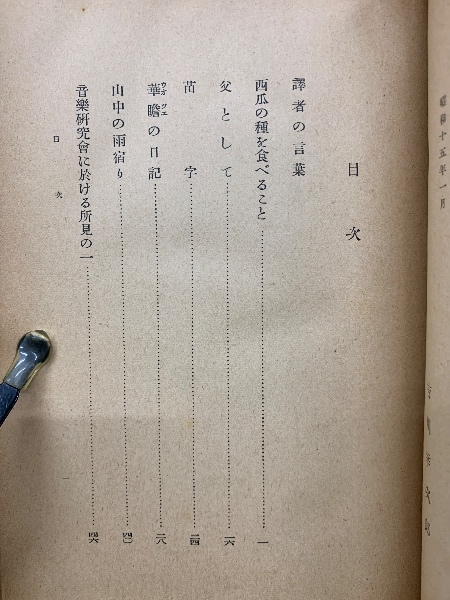 昭和十五年一月
目次
譯者の言葉
西瓜の種を食べること……一
父として……一六
苗字……二四
華瞻の日記……二八
ウオツエ
山中の雨宿り……四〇
音樂硏究會に於ける所見の一……四六
目次